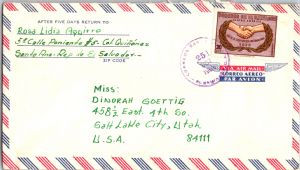 AFTER FIVE DAYS RETURN TO
Rosa Lidia Aguirre
5ª Calle Poniente #5- Col Quiñónez
Santa Ana- Rep de El Salvador-
ZIP CODE
VIA AIR MAIL
CORREO AEREO
PAR AVION
Miss:
DINORAH GOETTIG
458½ East. 4th So.
Salt Lake City, Utah
U.S.A. 84111